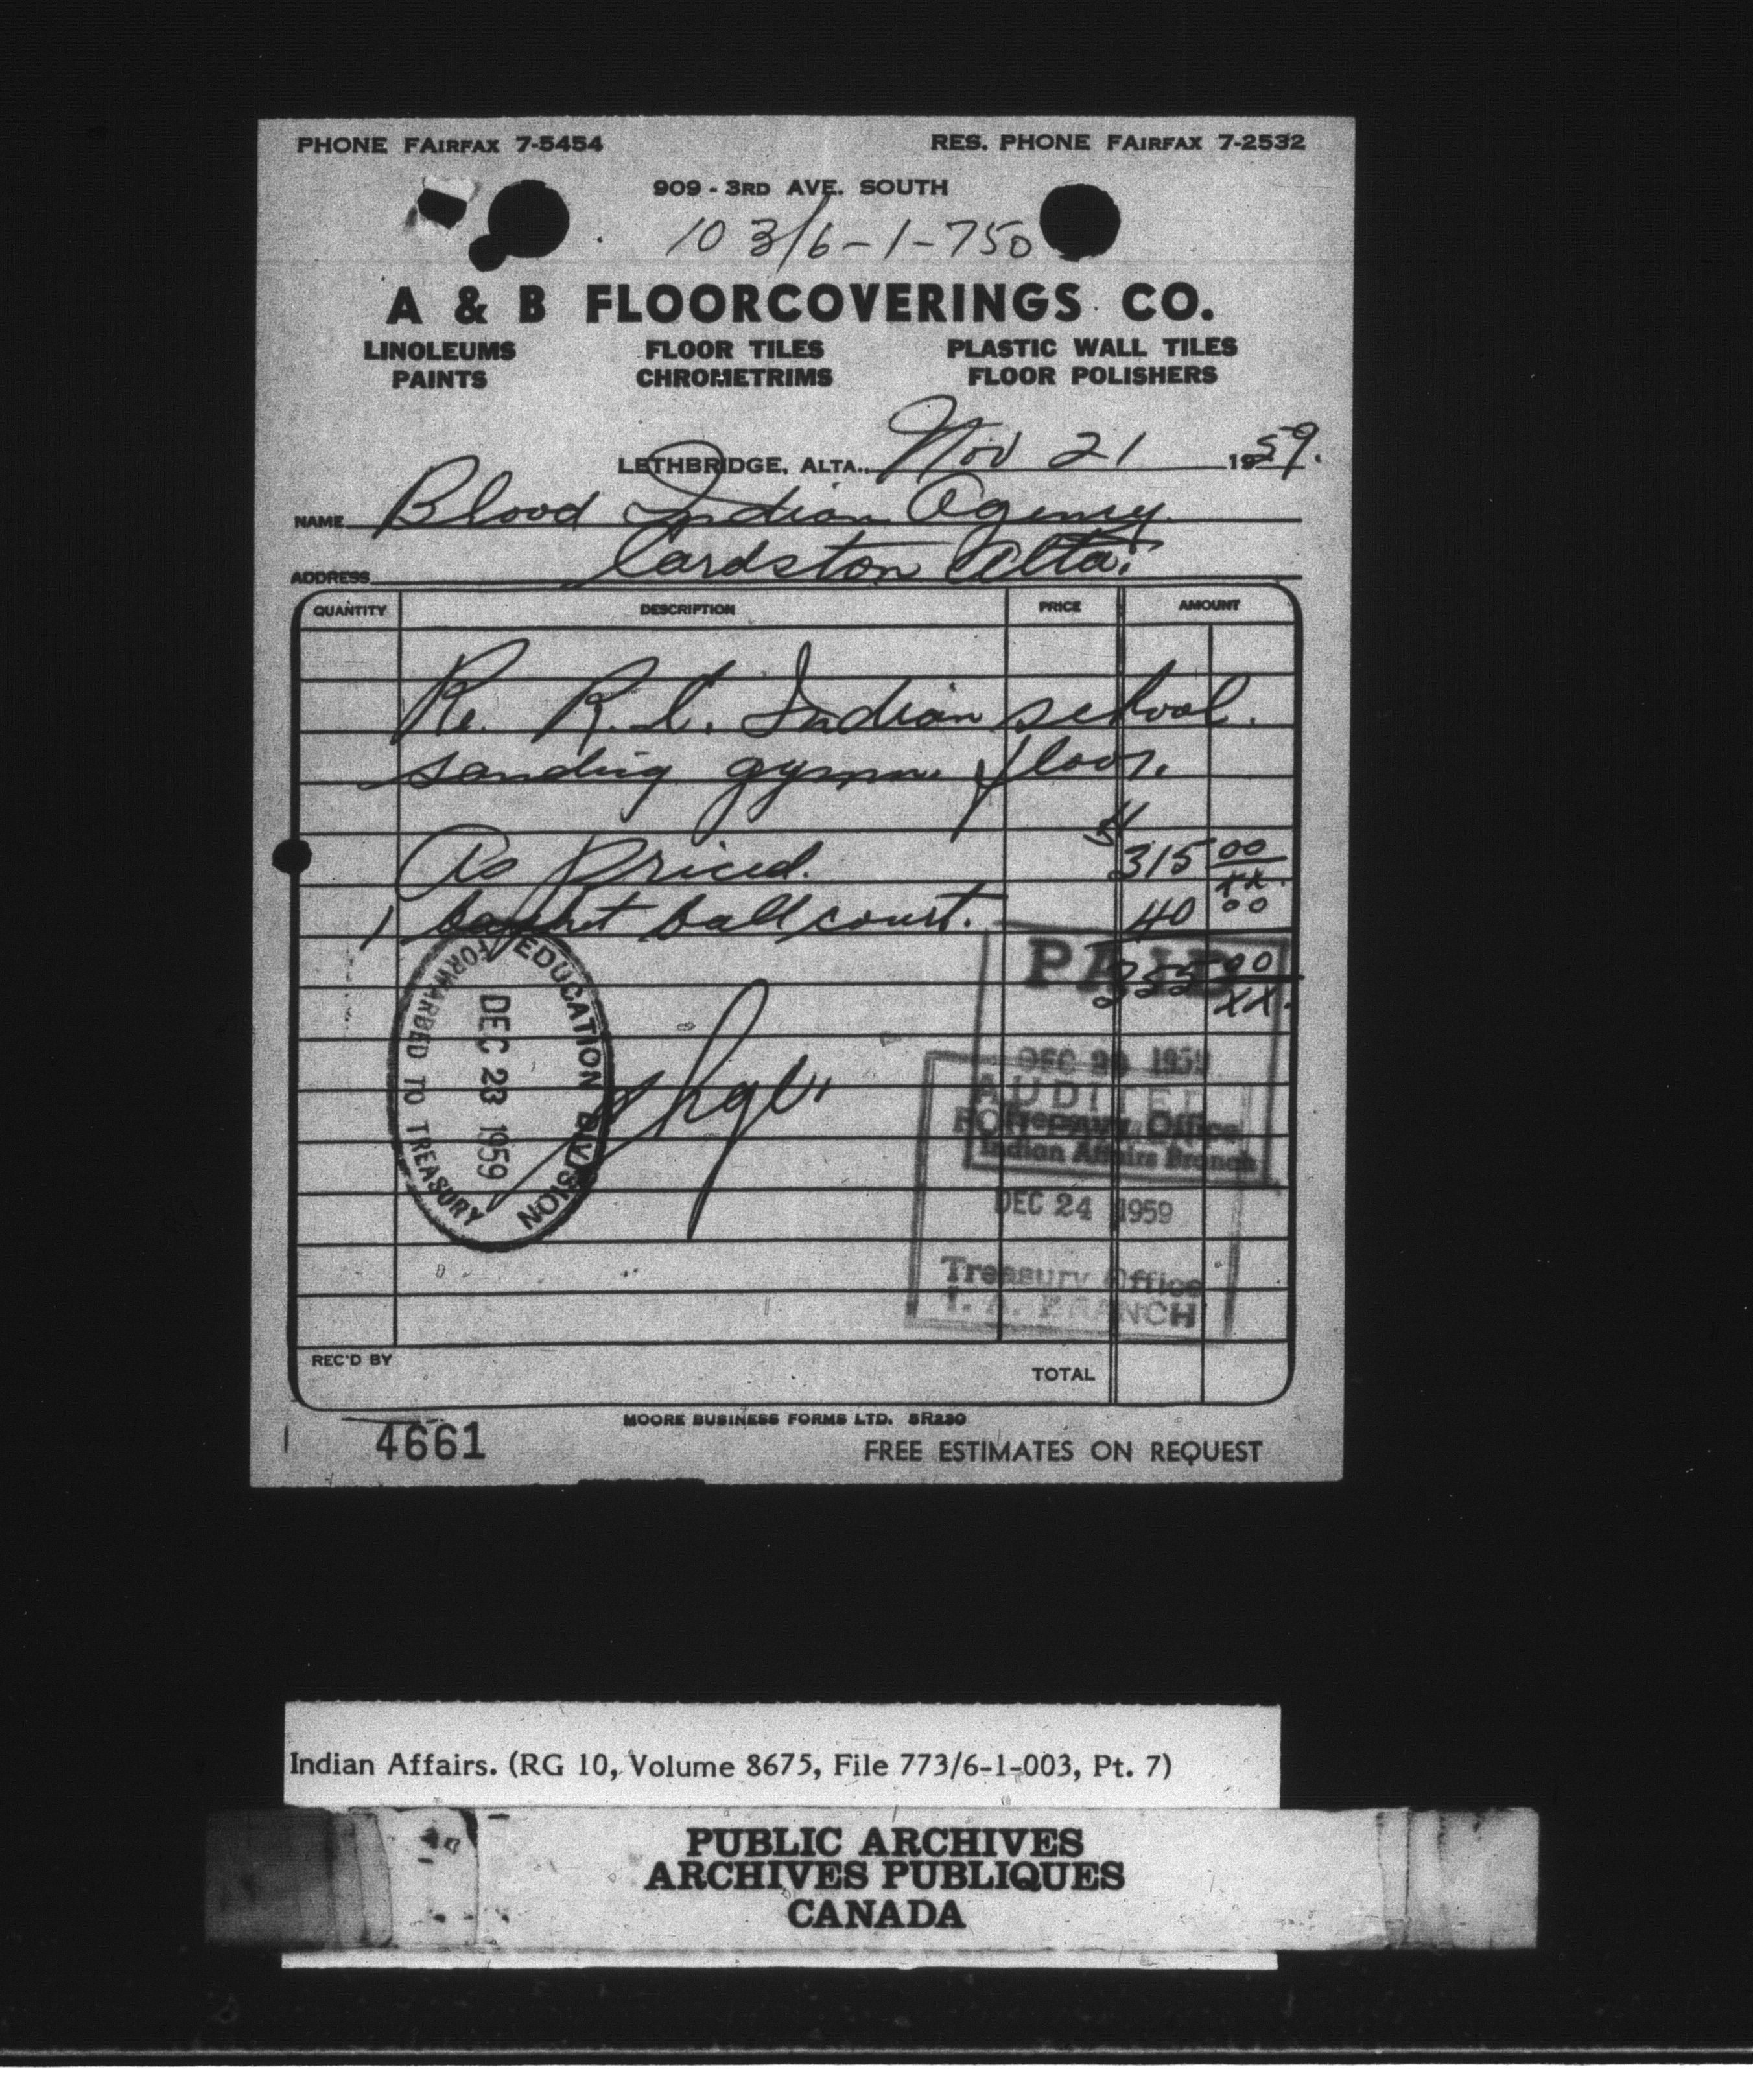 PHONE FAIRFAX 7-5454 RES. PHONE FAIRFAX 7-2532
909 - 3RD AVE. SOUTH
103/6-1-750
A & B FLOORCOVERINGS CO.
LINOLEUMS FLOOR TILES PLASTIC WALL TILES
PAINTS CHROMETRIMS FLOOR POLISHERS
LETHBRIDGE, ALTA. Nov 21 1959.
NAME Blood Indian Agency.
ADDRESS Cardston Alta.
QUANTITY DESCRIPTION PRICE AMOUNT
Re. R.C. Indian school.
sanding gymn. floor.
As Priced. $315 00/xx.
1 basket ball court. 40 00
355 00/xx.
EDUCATION DIVISION
DEC 23 1959
FORWARDED TO TREASURY
PAID
DEC 29 1959
Treasury Office
Indian Affairs Branch
AUDITED
DEC 24 1959
Treasury Office
I. A. BRANCH
REC'D BY TOTAL
MOORE BUSINESS FORMS LTD. SR230
4661 FREE ESTIMATES ON REQUEST
Indian Affairs. (RG 10, Volume 8675, File 773/6-1-003, Pt. 7)
PUBLIC ARCHIVES
ARCHIVES PUBLIQUES
CANADA